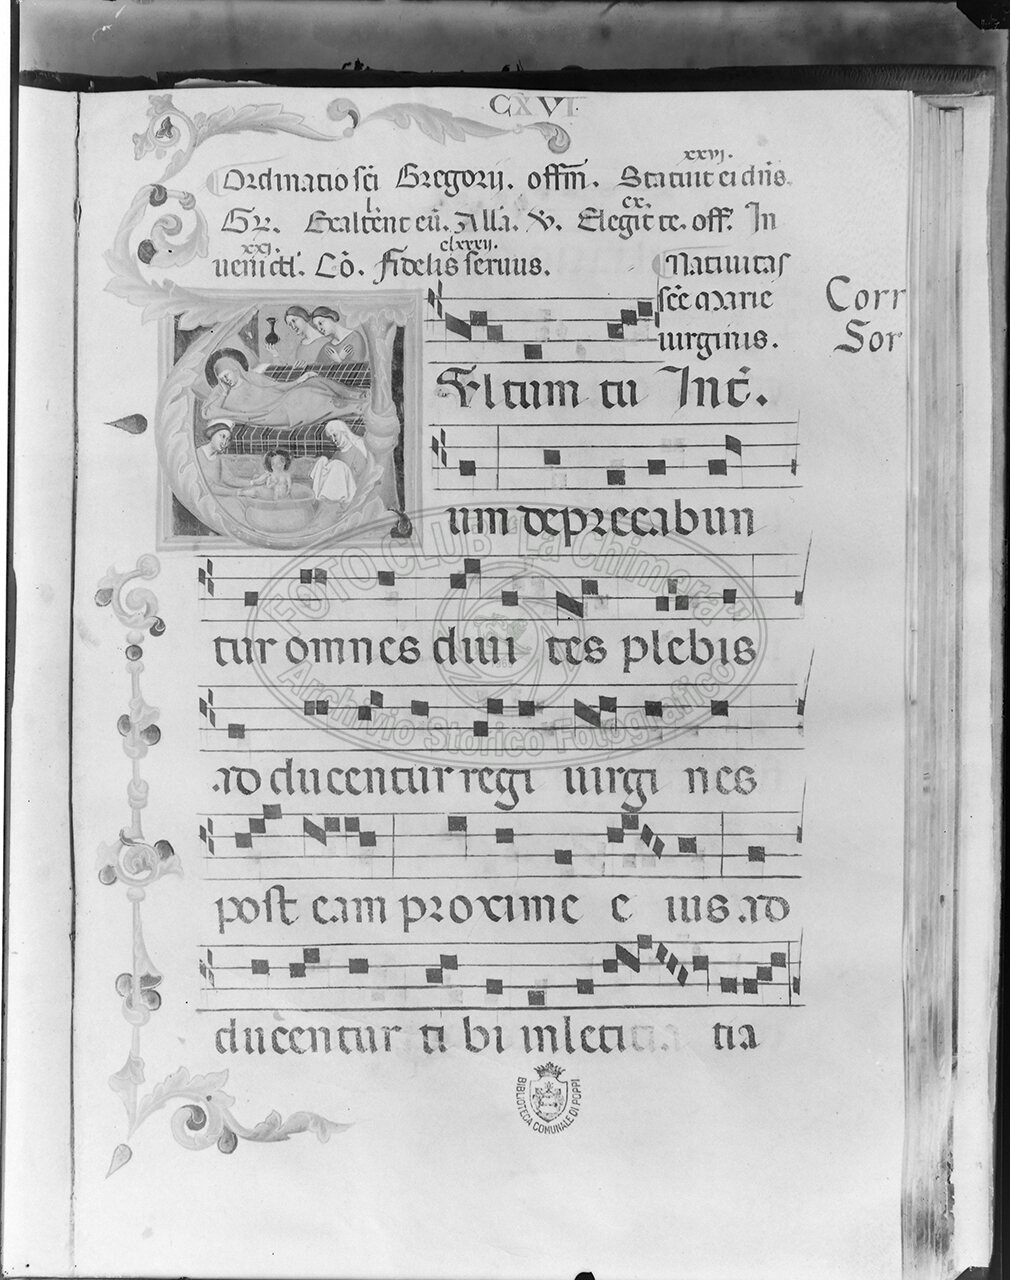 CXVI
Ordinatio sci Gregorij. offm. Statuit ei dns.
xxvj.
Gr. Exaltent eu. Alla. V. Elegit te. off. In
l. cx.
ueni dd. Co. Fidelis seruus.
xxj. clxxxij.
Natiuitas
sce Marie
uirginis.
Corr
Sor
Vltum tu Int.
um deprecabun
tur omnes diui tes plebis
ad ducentur regi uirgi nes
post eam proxime e ius ad
ducentur ti bi inleti tia
FOTO CLUB "La Chimera"
Archivio Storico Fotografico
BIBLIOTECA COMUNALE DI POPPI